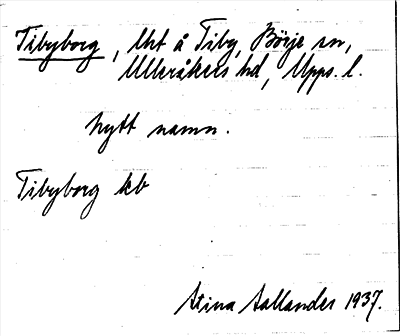 Tibyborg, lht å Tiby, Börje sn,
Ulleråkers hd, Upps. l.
Nytt namn.
Tibyborg kb
Stina Sallander 1937.